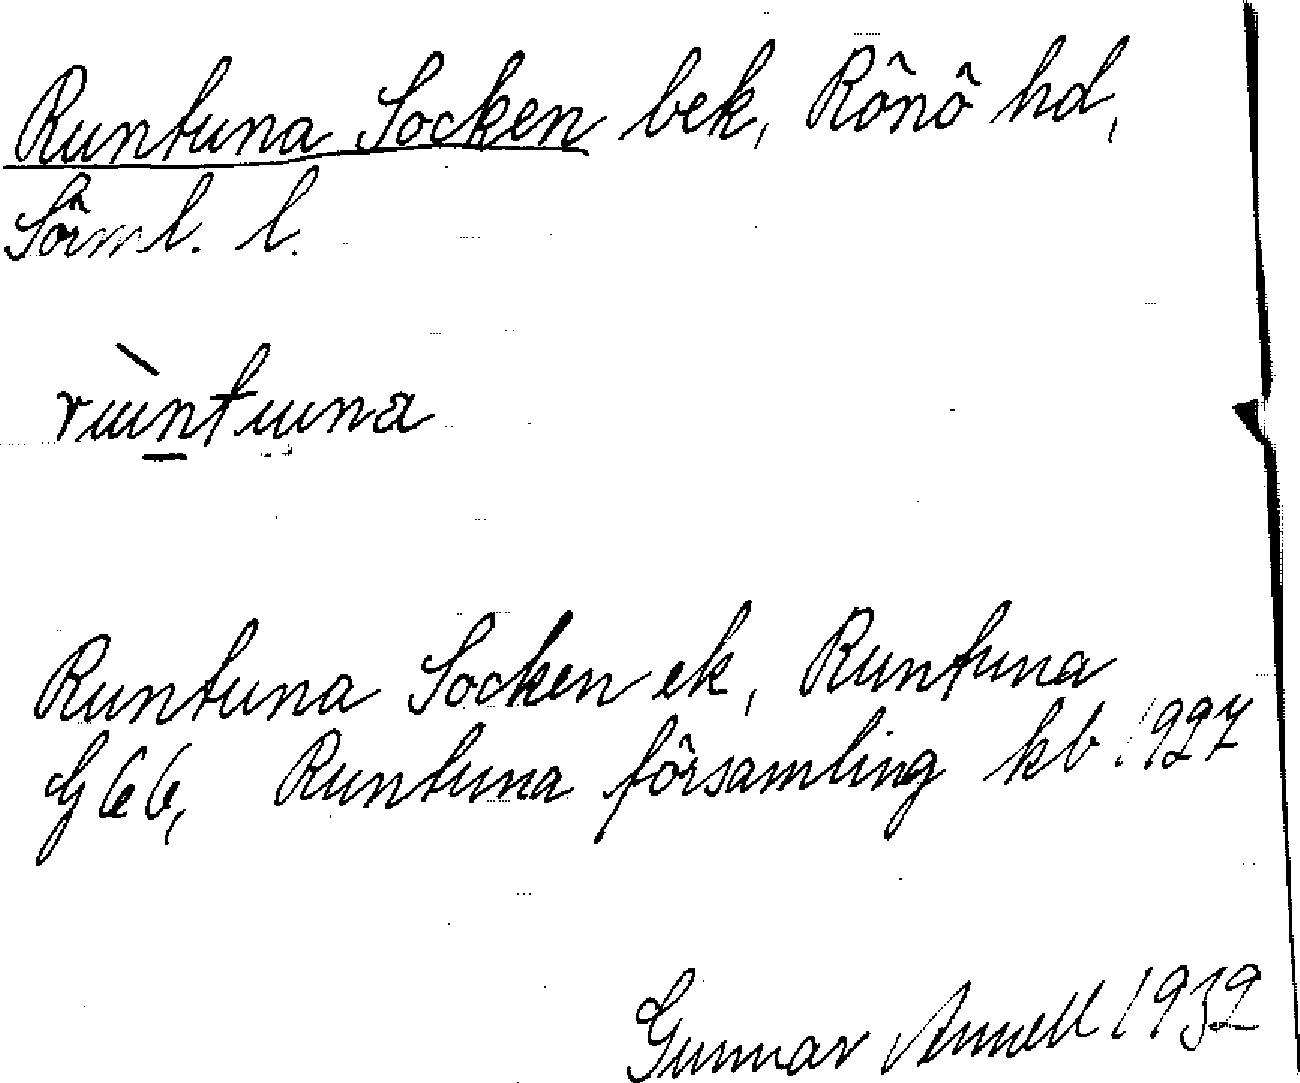 Runtuna Socken bek, Rônô hd,
Sôrml. l.
rùntuna
Runtuna Socken ek, Runtuna
G 66, Runtuna fôrsamling kb 1927
Gunnar Annell 1932